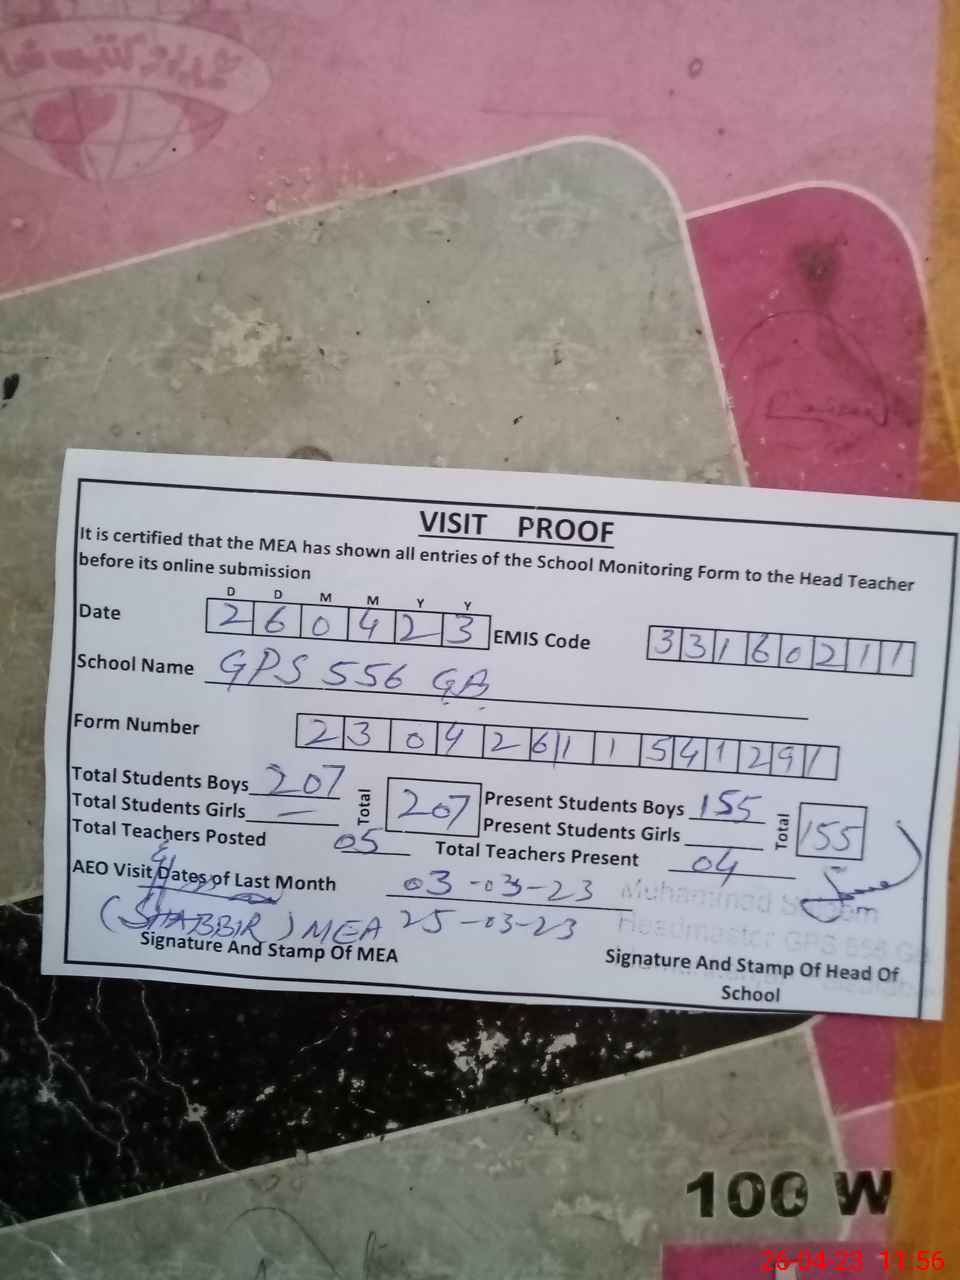 VISIT PROOF
It is certified that the MEA has shown all entries of the School Monitoring Form to the Head Teacher
before its online submission
D D M M Y Y
Date 2 6 0 4 2 3 EMIS Code 3 3 1 6 0 2 1 1
School Name GPS 556 GB
Form Number 2 3 0 4 2 6 1 1 5 4 1 2 9 1
Total Students Boys 207 Total 207 Present Students Boys 155 Total 155
Total Students Girls — Present Students Girls
Total Teachers Posted 05 Total Teachers Present 04
AEO Visit Dates of Last Month 03-03-23
(SHABBIR) MEA 25-03-23
Muhammad
Headmaster GPS 556 GB
Signature And Stamp Of MEA
Signature And Stamp Of Head Of
School
100 W
26-04-23 11:56